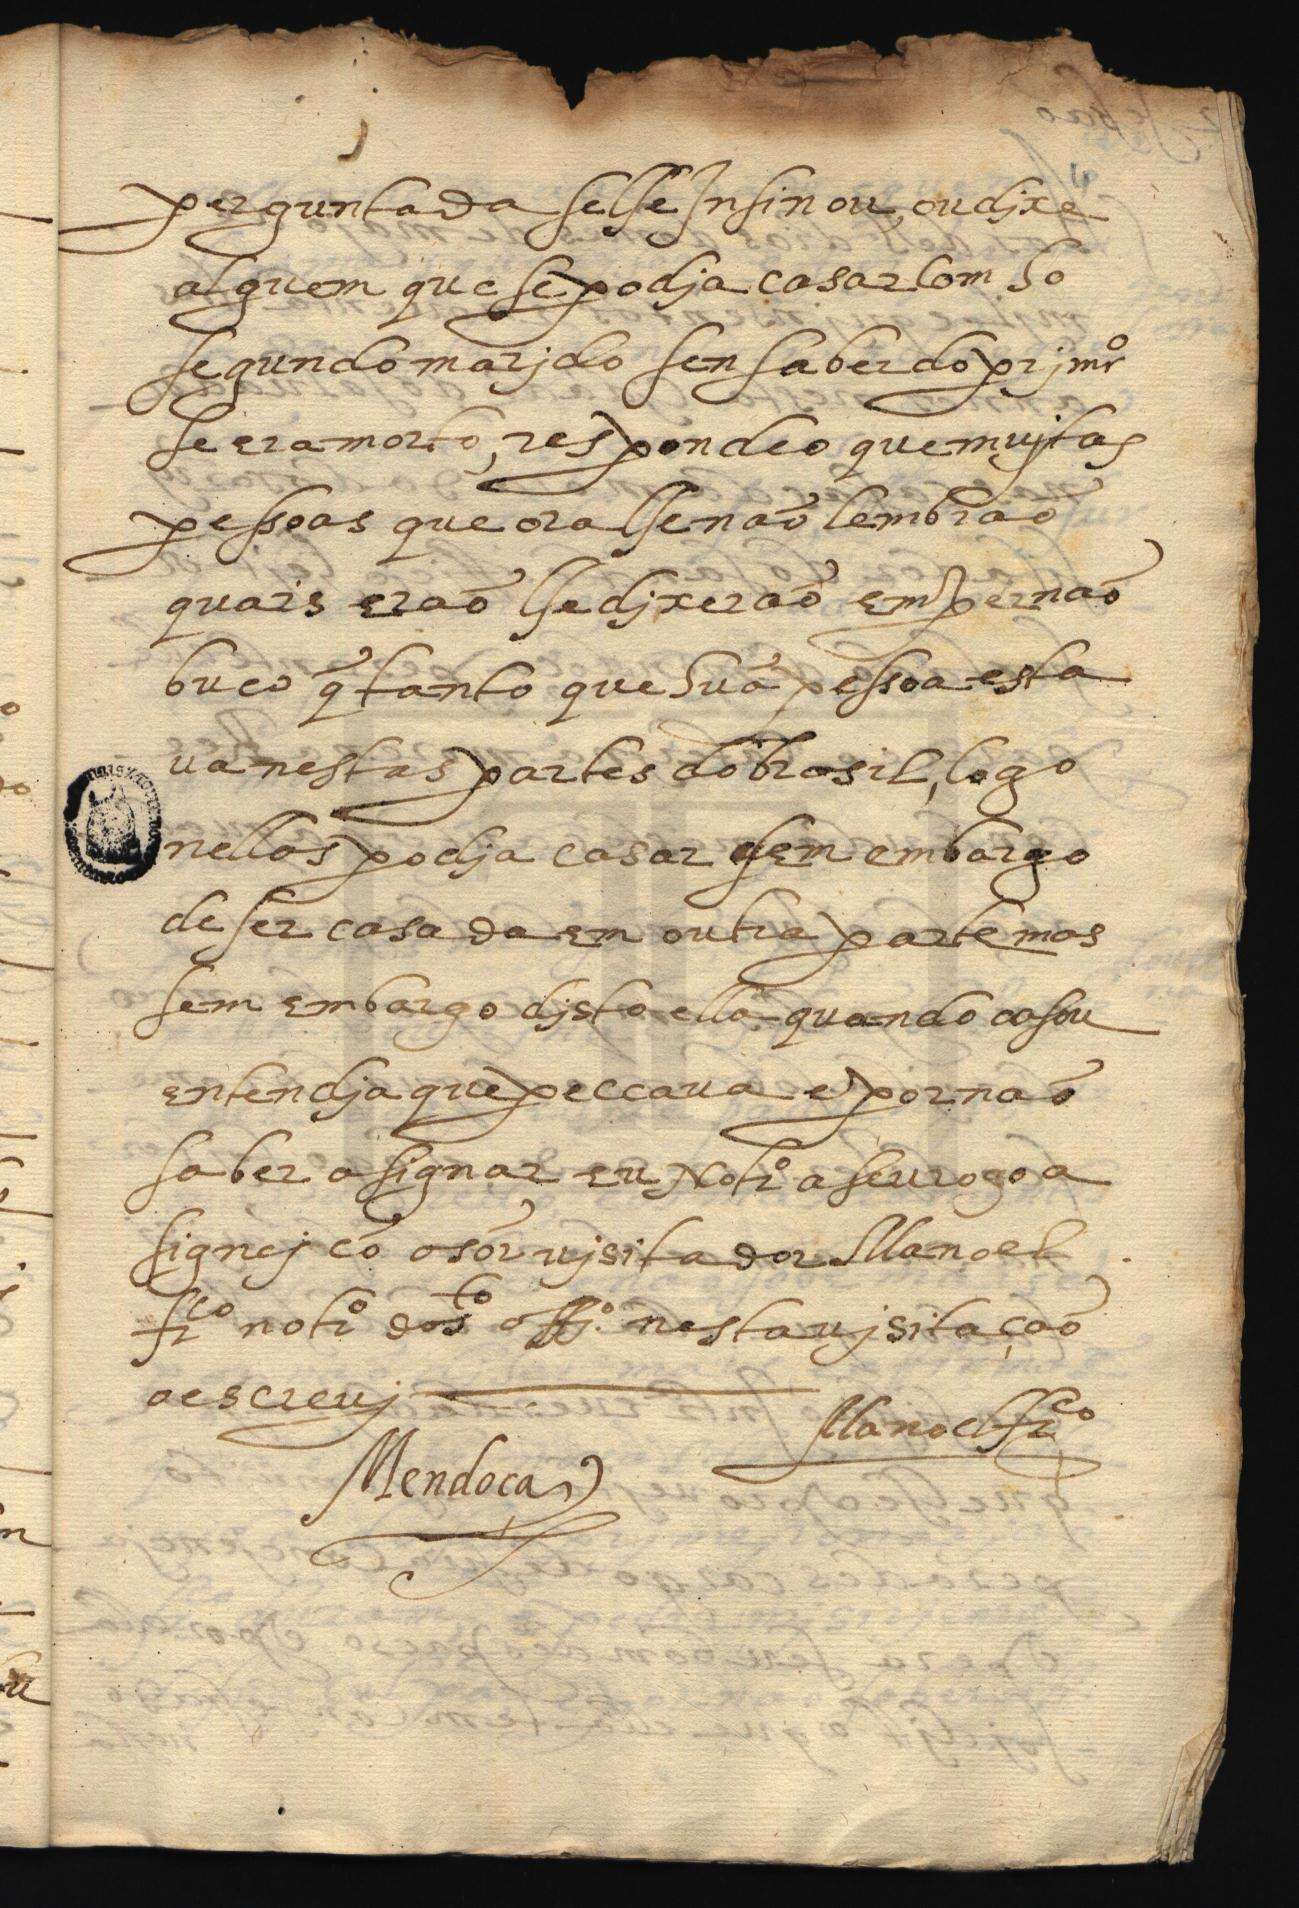 perguntada se lhe Insinou, ou dixe
alguem que se podja casar com ho
segundo marjdo sen saber do prjmrº
se era morto, respondeo que mujtas
pessoas que ora lhe não lembrão
quais erão lhe djxerão em pernão
buco q̃ tanto que hũa pessoa esta
ua nestas partes do brasil, logo
nellas podja casar sem embargo
de ser casada em outra parte mas
sem embargo djsto ella quando casou
entendja que peccaua e por não
saber asignar eu Notrº a seu rogo a
signej cõ o sõr ujsitador Manoel
frco notrº do sto offº nesta ujsitação
o escreuj
Manoel frco
Mendoça